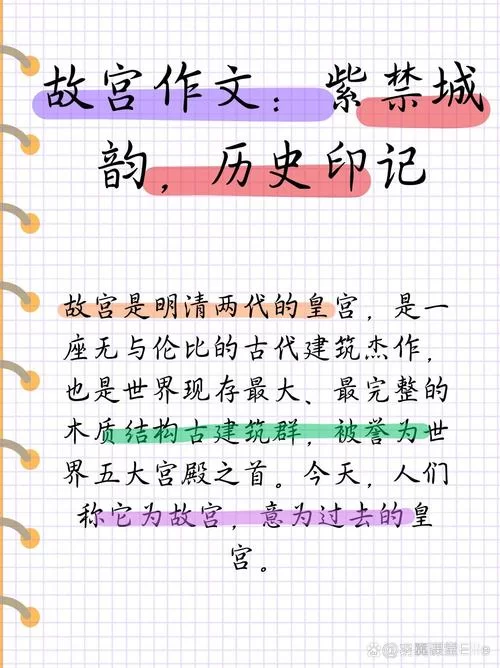 故宫作文：紫禁城
韵，历史印记
故宫是明清两代的皇宫，是一
座无与伦比的古代建筑杰作，
也是世界现存最大、最完整的
木质结构古建筑群，被誉为世
界五大宫殿之首。今天，人们
称它为故宫，意为过去的皇
宫。